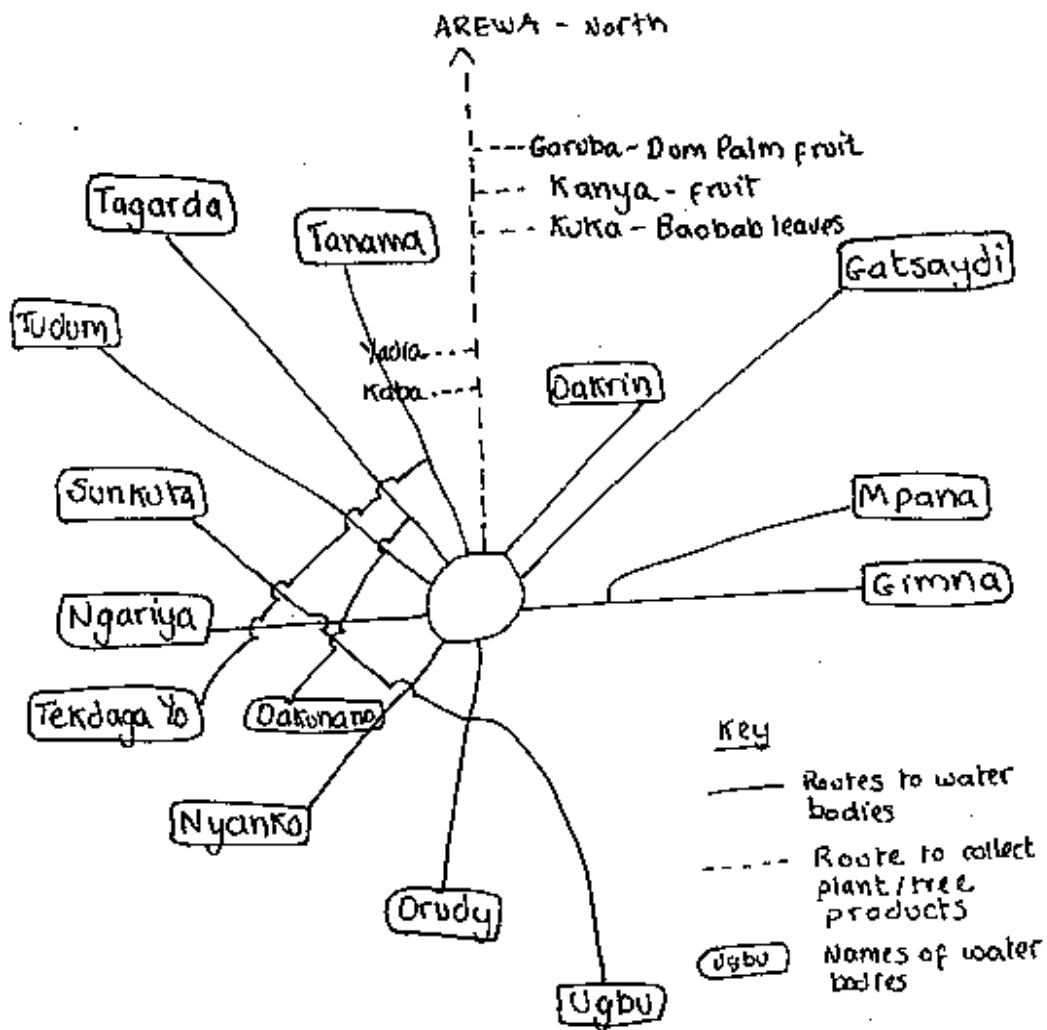 AREWA - North
Goruba - Dom Palm fruit
Kanya - fruit
Kuka - Baobab leaves
Tagarda
Tanama
Gatsaydi
Tudum
Yadia
Kaba
Dakrin
Sunkuta
Mpana
Gimna
Ngariya
Tekdaga Yo
Dakunano
Nyanko
Orudy
Ugbu
Key
Routes to water
bodies
Route to collect
plant/tree
products
Ugbu
Names of water
bodies